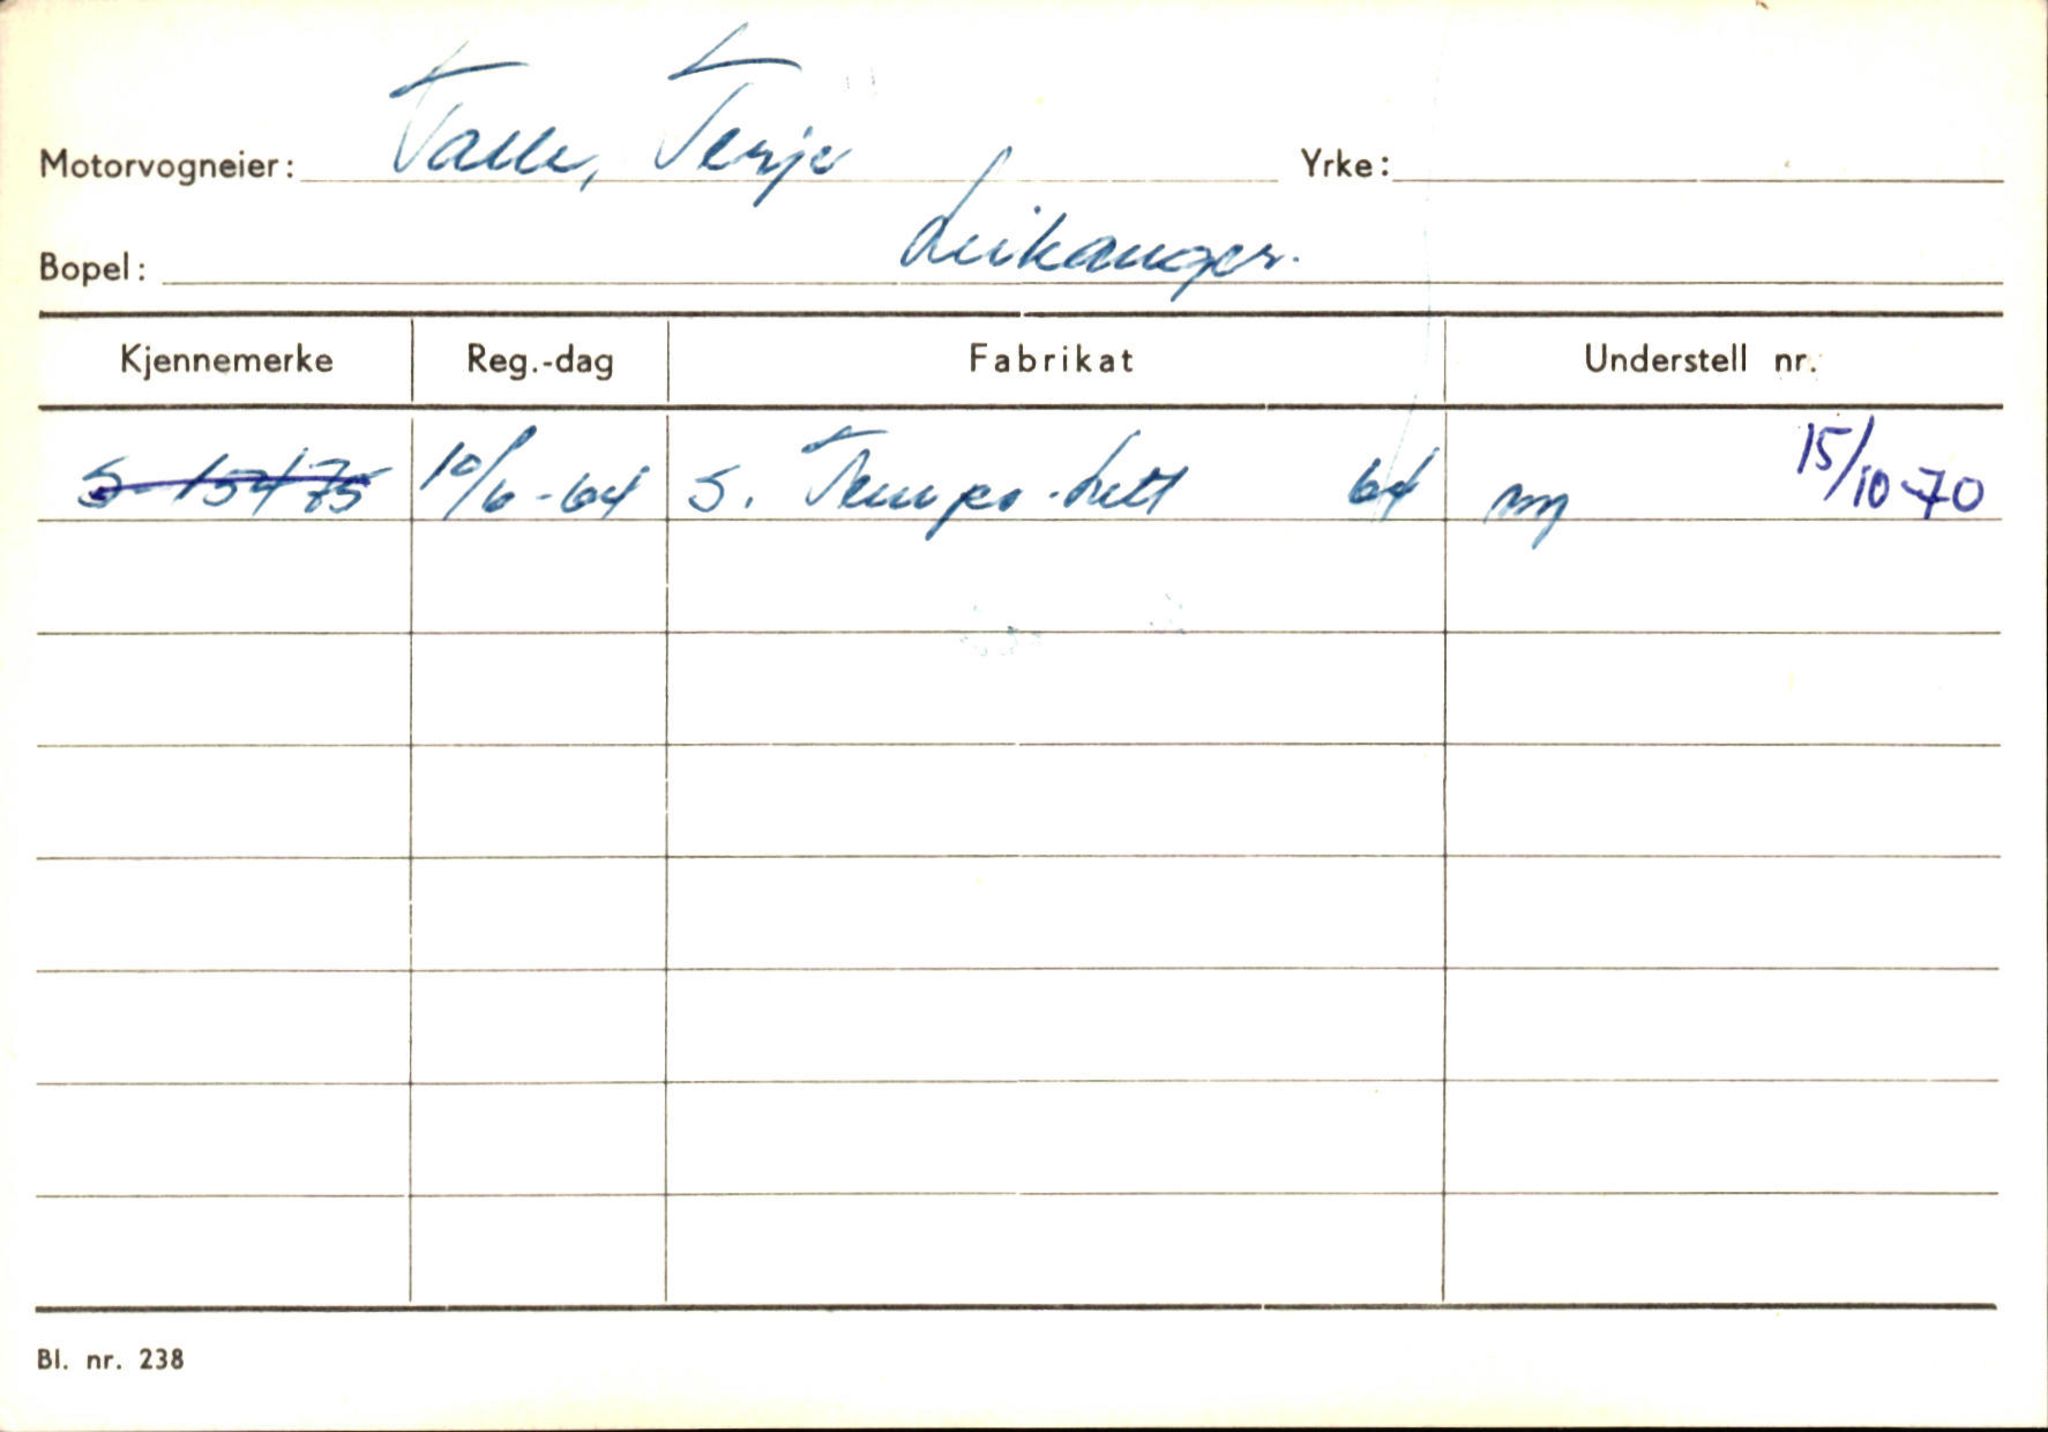 Motorvogneier: Talle, Terje Yrke:
Bopel: Leikanger.
Kjennemerke Reg.-dag Fabrikat Understell nr.
S-15475 10/6-64 S. Tempo-Lett 64 15/10-70
Bl. nr. 238